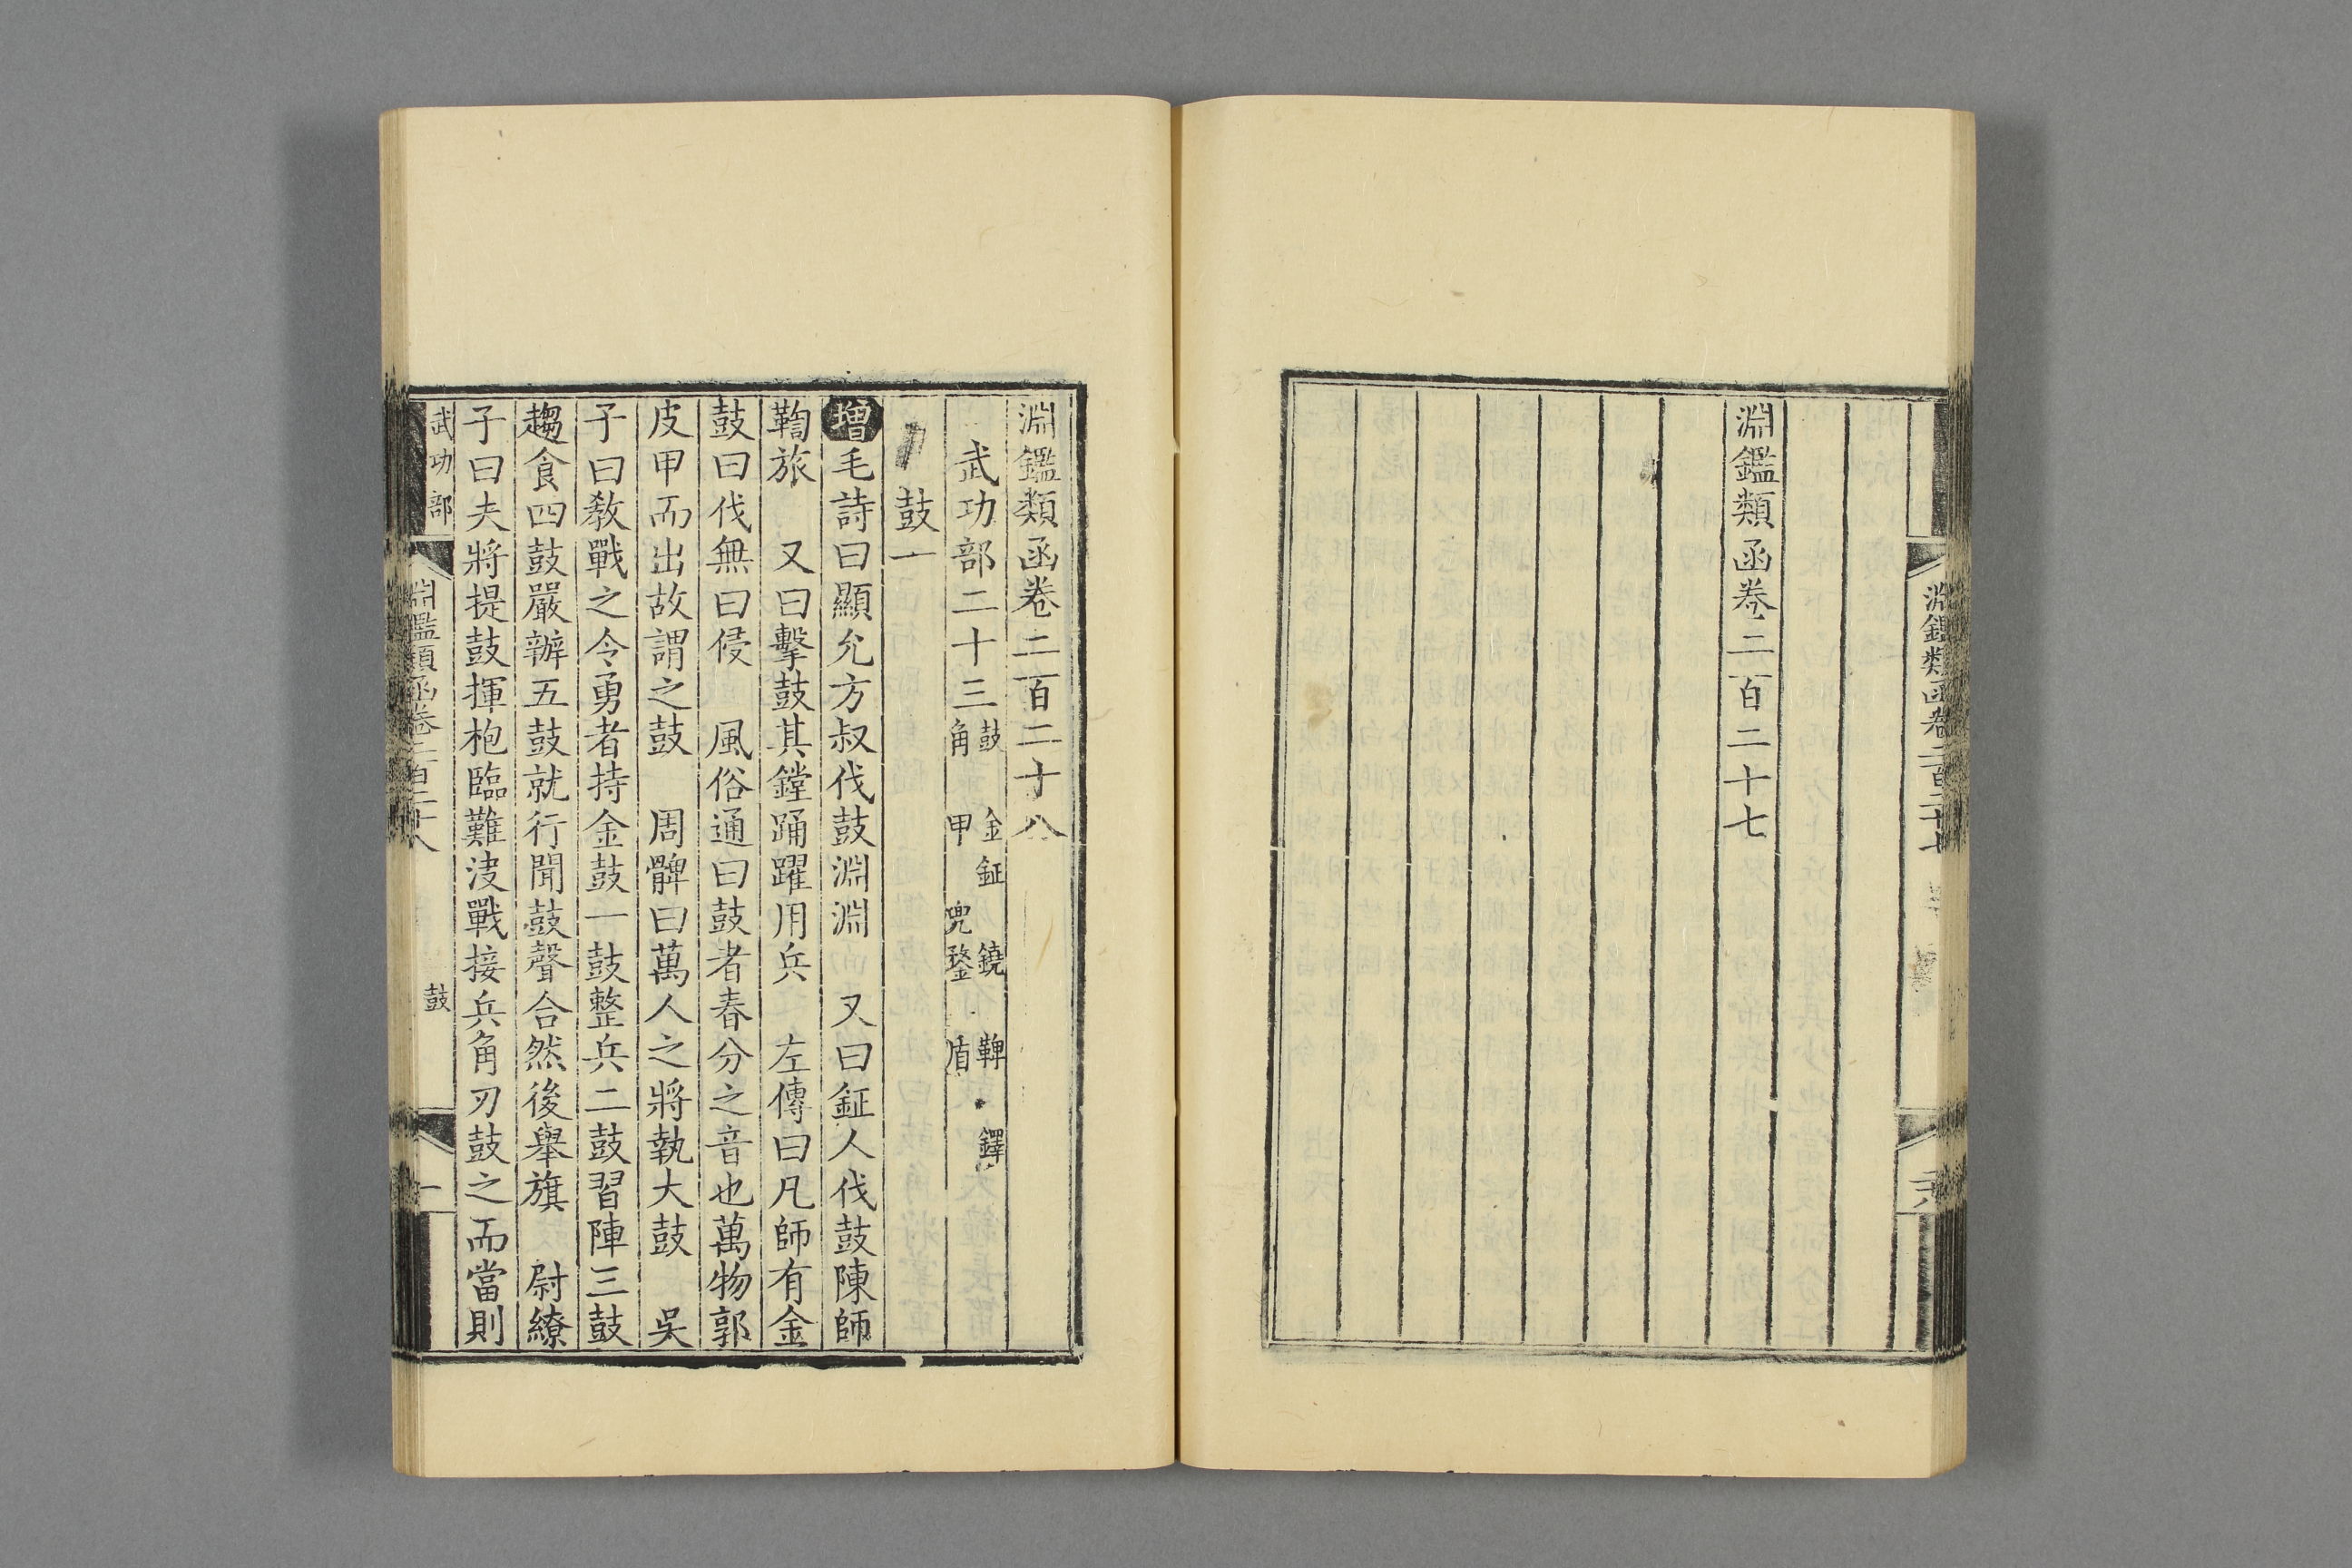 淵鑑類函卷二百二十七
淵鑑類函卷二百二十七
淵鑑類函卷二百二十八
武功部二十三 鼓 金鉦 鐃 鞞 鐸
角 甲 兜鍪 盾
鼓一
增 毛詩曰顯允方叔伐鼓淵淵 又曰鉦人伐鼓陳師
鞫旅 又曰擊鼓其鏜踊躍用兵 左傳曰凡師有金
鼓曰伐無曰侵 風俗通曰鼓者春分之音也萬物郭
皮甲而出故謂之鼓 周髀曰萬人之將執大鼓 吳
子曰教戰之令勇者持金鼓一鼓整兵二鼓習陣三鼓
趨食四鼓嚴辦五鼓就行聞鼓聲合然後舉旗 尉繚
子曰夫將提鼓揮枹臨難決戰接兵角刃鼓之而當則
武功部 淵鑑類函卷二百二十八 鼓 一